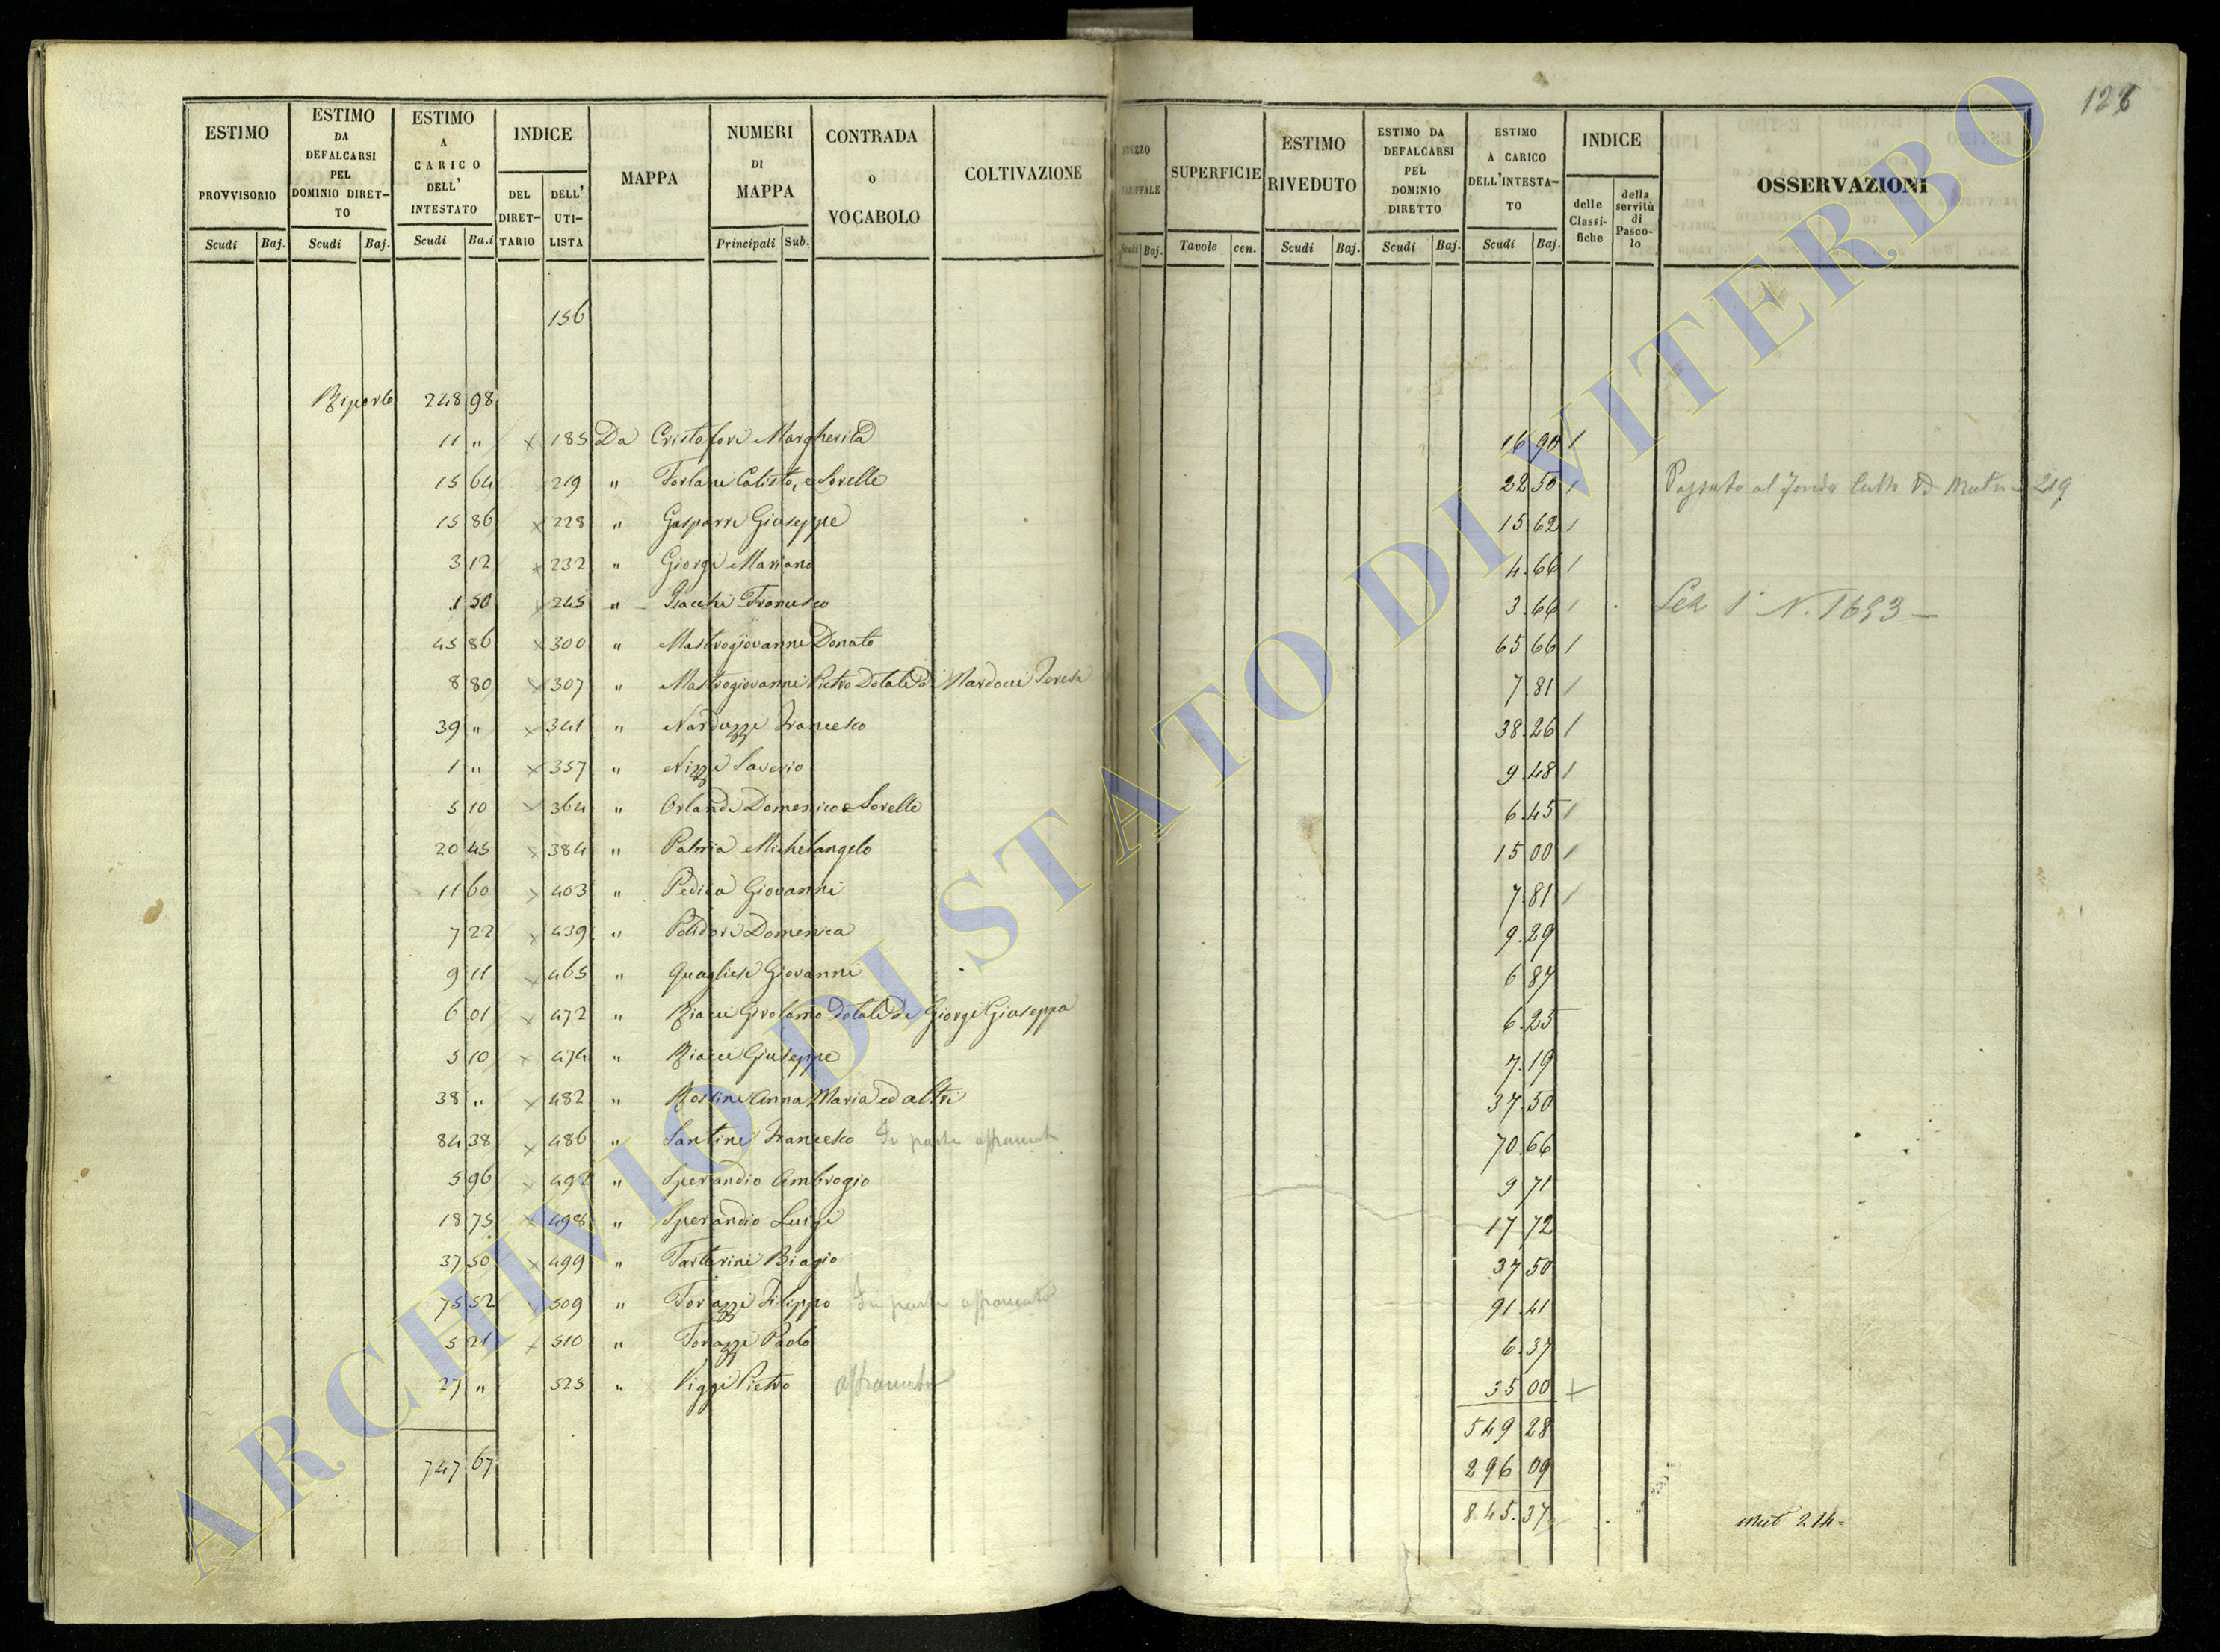 128
ESTIMO PROVVISORIO Scudi Baj.
ESTIMO DA DEFALCARSI PEL DOMINIO DIRETTO Scudi Baj.
ESTIMO A CARICO DELL' INTESTATO Scudi Ba.i
INDICE DEL DIRETTARIO DELL' UTILISTA
MAPPA
NUMERI DI MAPPA Principali Sub.
CONTRADA o VOCABOLO
COLTIVAZIONE
PREZZO TARIFFALE Scudi Baj.
SUPERFICIE Tavole cen.
ESTIMO RIVEDUTO Scudi Baj.
ESTIMO DA DEFALCARSI PEL DOMINIO DIRETTO Scudi Baj.
ESTIMO A CARICO DELL'INTESTATO Scudi Baj.
INDICE delle Classifiche della servitù di Pascolo
OSSERVAZIONI
156
Riporto 248 98
11 " x 185 Da Cristofori Margherita 16 90 /
15 64 219 " Forlani Calisto, e Sorelle 22 50 / 219
15 86 x 228 " Gasparri Giuseppe 15.62 /
3 12 x 232 " Giorgi Mariano 4.66 /
1 50 x 245 " Francesco 3.66 / Sez 1ª N. 1653
45 86 x 300 " Mastrogiovanni Donato 65 66 /
8 80 x 307 " Mastrogiovanni Pietro Dotale di Nardocci Teresa 7.81 /
39 " x 341 " Narduzzi Francesco 38.26 /
1 " x 357 " Nizzi Saverio 9.48 /
5 10 x 364 " Orlandi Domenico e Sorelle 6.45 /
20 45 x 384 " Patria Michelangelo 15 00 /
11 60 x 403 " Pedica Giovanni 7.81 /
7 22 x 439 " Polidori Domenica 9.29
9 11 x 465 " Quagliesi Giovanni 6 87
6 01 x 472 " Riacci Girolamo Dotale di Giorgi Giuseppa 6.25
5 10 x 474 " Riacci Giuseppe 7.19
38 " x 482 " Rossini Anna Maria ed altri 37.50
84 38 x 486 " Santini Francesco In parte affrancato 70.66
5 96 x 492 " Sperandio Ambrogio 9 71
18 75 x 498 " Sperandio Luigi 17 72
37 50 x 499 " Tarterini Biagio 37 50
75 52 509 " Torazzi Filippo In parte affrancato 91.41
5 21 x 510 " Torazzi Paolo 6.37
27 " 525 " Viggi Pietro affrancato 35 00 +
549 28
747.67
296 09
845.37
Mut 214
ARCHIVIO DI STATO DI VITERBO